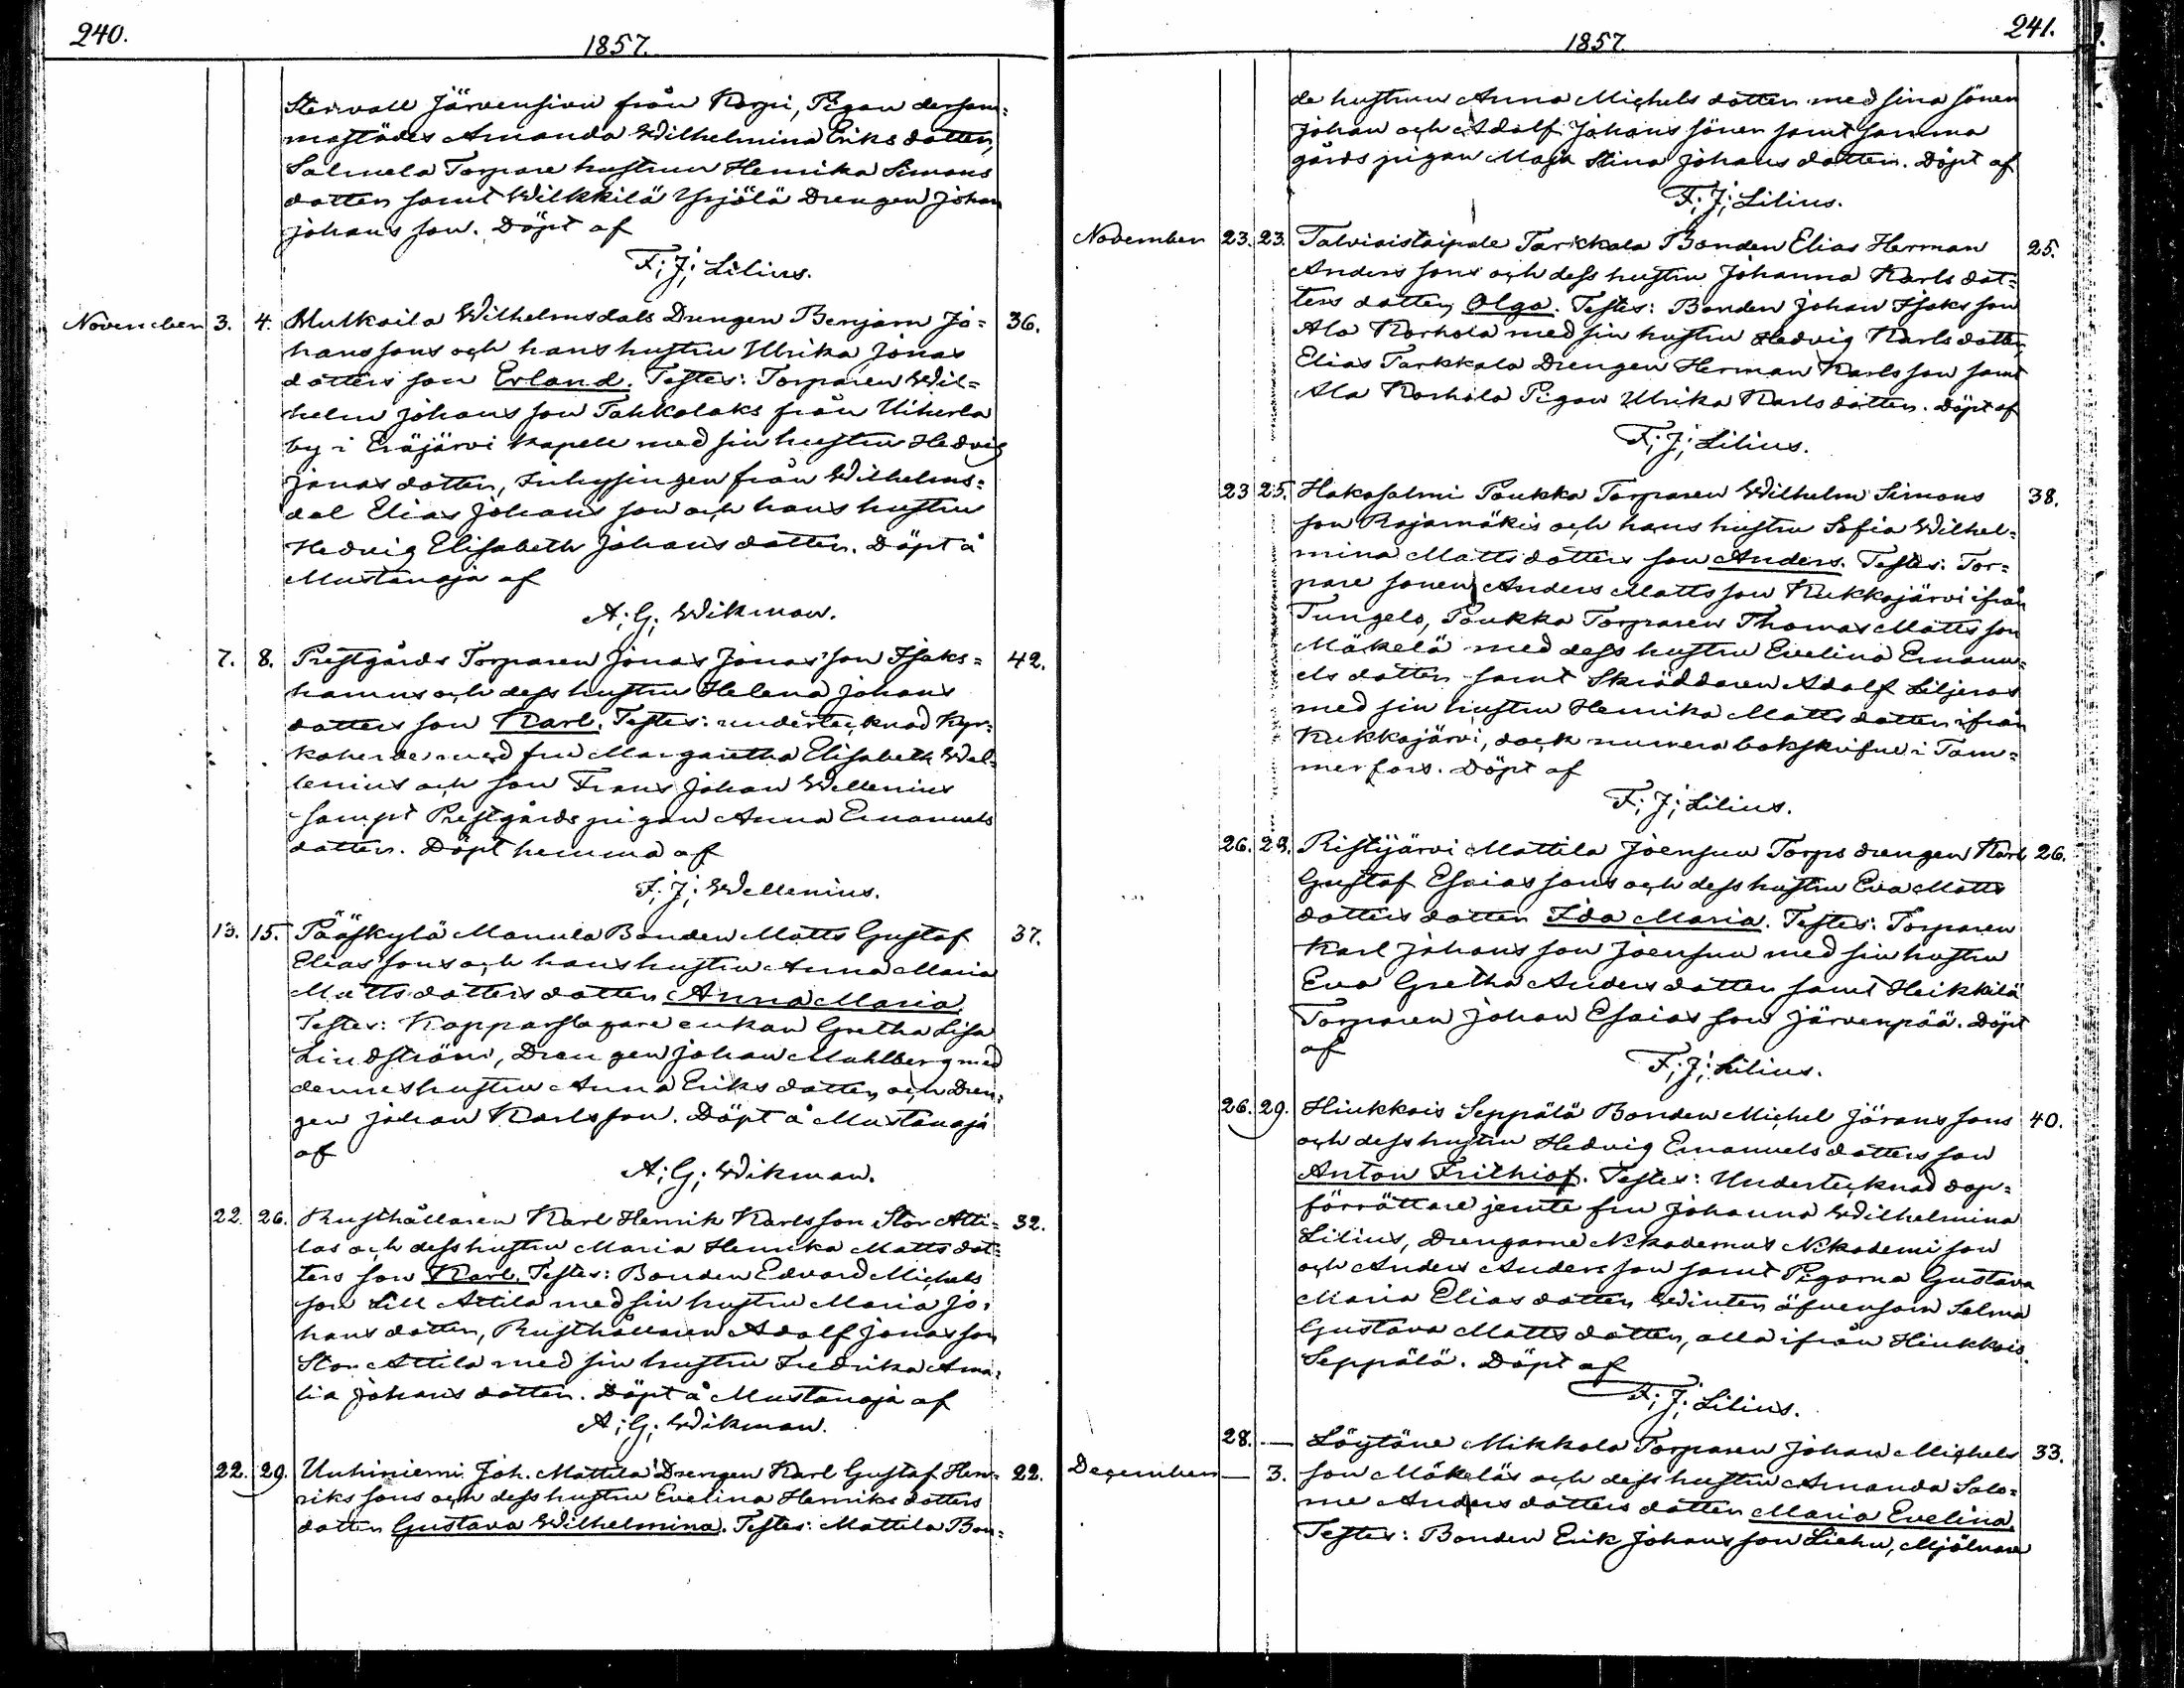 240.
1857.
Stenvall Järvensivu från Korpi, Pigan dersam=
mastädes Amanda Wilhelmina Eriks dotter,
Salmela Torpare hustrun Henrika Simons
dotter samt Wilkkilä Yrjölä Drengen Johan
Johans son. Döpt af
F; J; Lilius.
November 3. 4. Mulkoila Wilhelmsdals Drengen Benjam Jo= 36.
hans sons och hans hustru Ulrika Jonas
dotters son Erland. Testes: Torparen Wil=
helm Johans son Tahkolaks från Uiherla
by i Eräjärvi kapell med sin hustru Hedvig
Jonas dotter, Inhysingen från Wilhelms=
dal Elias Johans son och hans hustru
Hedvig Elisabeth Johans dotter. Döpt å
Mustanoja af
A; G; Wikman.
7. 8. Prestgårds Torparen Jonas Jonas son Isaks= 42.
hamns och dess hustru Helena Johans
dotters son Karl. Testes: undertecknad Kyr=
koherde med fru Margaretha Elisabeth Wel=
lenius och son Frans Johan Wellenius
sampt Prestgårds pigan Anna Emanuels
dotter. Döpt hemma af
F; J; Wellenius.
13. 15. Pääskylä Manula Bonden Matts Gustaf 37.
Elias sons och hans hustru Anna Maria
Matts dotters dotter Anna Maria.
Testes: Kopparslagare enkan Gretha Lisa
Lindström, Drengen Johan Mahlberg med
dennes hustru Anna Eriks dotter, och Dren=
gen Johan Karlsson. Döpt å Mustanoja
af
A; G; Wikman.
22. 26. Rusthållaren Karl Henrik Karlsson Stor Atti= 32.
las och dess hustru Maria Henrika Matts dot=
ters son Karl. Testes: Bonden Edvard Michels
son Lill Attila med sin hustru Maria Jo=
hans dotter, Rusthållaren Adolf Jonas son
Stor Attila med sin hustru Fredrika Ama=
lia Johans dotter. Döpt å Mustanoja af
A; G; Wikman.
22. 29. Uuhiniemi Joh. Mattila Drengen Karl Gustaf Hen= 22.
riks sons och dess hustru Evelina Henriks dotters
dotter Gustava Wilhelmina. Testes: Mattila Bon=
241.
1857.
de hustrun Anna Michels dotter med sina söner
Johan och Adolf Johans söner samt samma
gårds pigan Maja Stina Johans dotter. Döpt af
F; J; Lilius.
November 23. 23. Talviaistaipale Tarkkala Bonden Elias Herman 25.
Anders sons och dess hustru Johanna Karls dot=
ters dotter, Olga. Testes: Bonden Johan Isaks son
Ala Korhola med sin hustru Hedvig Karls dotter,
Elias Tarkkala Drengen Herman Karls son samt
Ala Korhola Pigan Ulrika Karls dotter. Döpt af
F; J; Lilius.
23 25. Hakosalmi Poukka Torparen Wilhelm Simons 38.
son Rajamäkis och hans hustru Sofia Wilhel=
mina Matts dotters son Anders. Testes: Tor=
pare sonen Anders Matts son Kukkojärvi ifrån
Tungelo, Poukka Torparen Thomas Matts son
Mäkelä med dess hustru Evelina Emanu=
els dotter samt Skräddaren Adolf Liljeros
med sin hustru Henrika Matts dotter ifrån
Kukkojärvi, dock numera bokskrifne i Tam=
merfors. Döpt af
F; J; Lilius.
26. 29. Ristijärvi Mattila Joensuu Torps drengen Karl 26.
Gustaf Esaias sons och dess hustru Eva Matts
dotters dotter Ida Maria. Testes: Torparen
Karl Johans son Joensuu med sin hustru
Eva Gretha Anders dotter samt Heikkilä
Torparen Johan Esaias son Järvenpää. Döpt
af
F; J; Lilius.
26. 29. Hiukkois Seppälä Bonden Michel Jörans sons 40.
och dess hustru Hedvig Emanuels dotters son
Anton Frithiof. Testes: Undertecknad dop=
förrättare jemte fru Johanna Wilhelmina
Lilius, Drengarne Nikodemus Nikodemi son
och Anders Anders son samt Pigorna Gustava
Maria Elias dotter Winter äfvensom Selma
Gustava Matts dotter, alla ifrån Hiukkois
Seppälä. Döpt af
F; J; Lilius.
28. — Löytäne Mikkola Torparen Johan Michels 33.
December — 3. son Mäkeläs och dess hustru Amanda Salo=
me Anders dotters dotter Maria Evelina.
Testes: Bonden Erik Johans son Liehu, Mjölnare